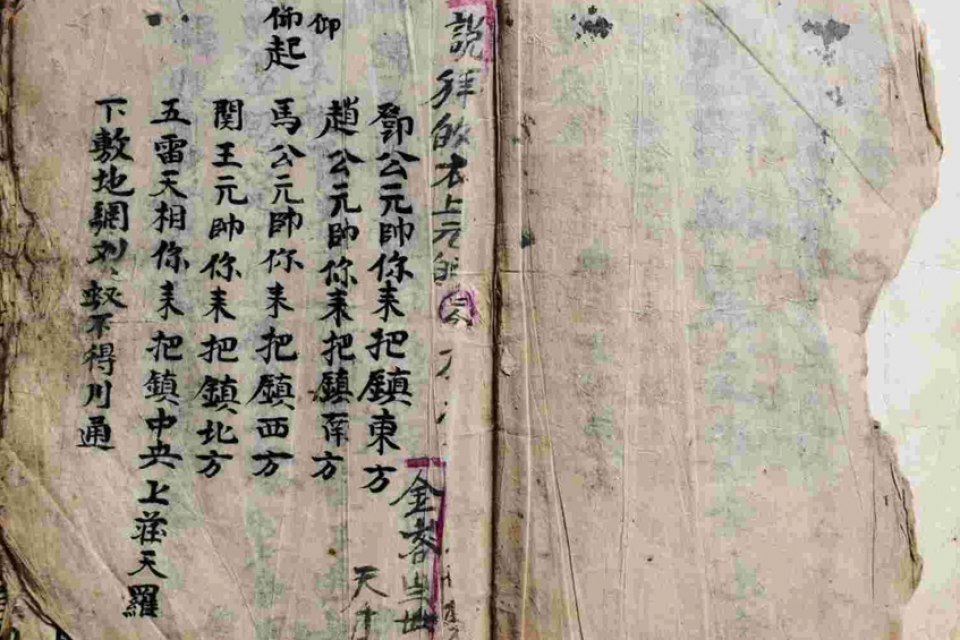 說拜的衣上元
金
天
鄧公元帥你来把鎮東方
趙公元帥你来把鎮南方
仰
仰起
馬公元帥你来把鎮西方
関王元帥你来把鎮北方
五雷天相你来把鎮中央上莊天羅
下敷地網刘、奴不得川通